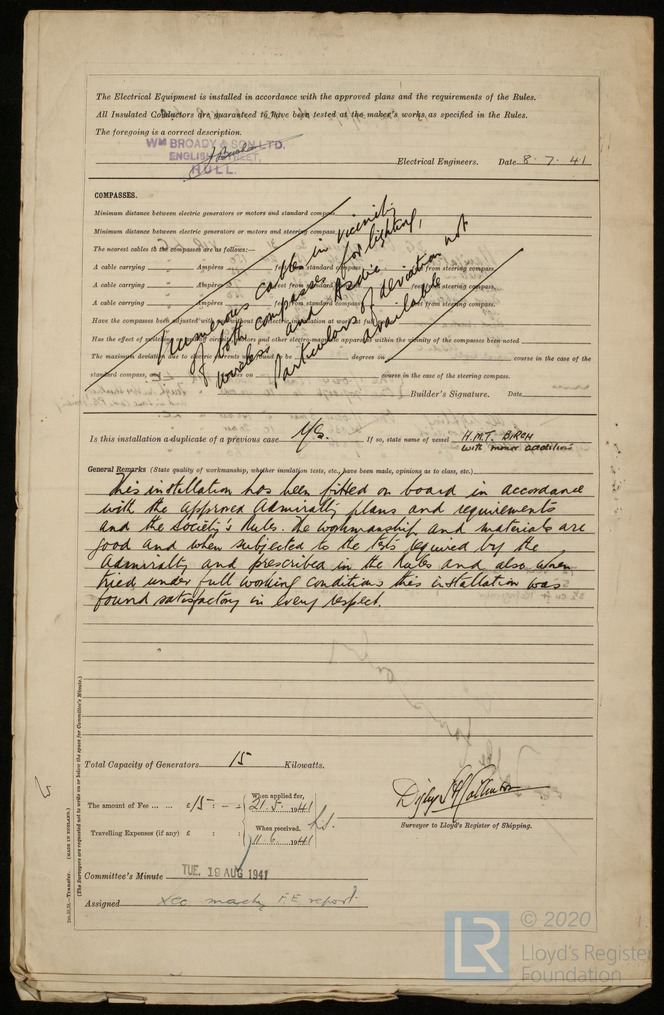 The Electrical Equipment is installed in accordance with the approved plans and the requirements of the Rules.
All Insulated Conductors are guaranteed to have been tested at the maker's works as specified in the Rules.
The foregoing is a correct description.
WM BROADY & SON LTD.
ENGLISH STREET,
HULL.
Electrical Engineers. Date 8.7.41
COMPASSES.
Minimum distance between electric generators or motors and standard compass
Minimum distance between electric generators or motors and steering compass
The nearest cables to the compasses are as follows:—
A cable carrying Ampères feet from standard compass feet from steering compass.
A cable carrying Ampères feet from standard compass feet from steering compass.
A cable carrying Ampères feet from standard compass feet from steering compass.
Have the compasses been adjusted with and without the electric installation at work at full
Has the effect of motors and other electro-magnetic apparatus within the vicinity of the compasses been noted
The maximum deviation due to electric currents was found to be degrees on course in the case of the
standard compass, and degrees on course in the case of the steering compass.
Numerous cables in vicinity
of both compasses for lighting,
wireless and Asdic
Particulars of deviation not
available
Builder's Signature. Date
Is this installation a duplicate of a previous case Yes. If so, state name of vessel H.M.T. BIRCH
with minor additions
General Remarks (State quality of workmanship, whether insulation tests, etc., have been made, opinions as to class, etc.)
This installation has been fitted on board in accordance
with the approved Admiralty plans and requirements
and the Society's Rules. The workmanship and materials are
good and when subjected to the tests required by the
Admiralty and prescribed in the Rules and also when
tried under full working conditions this installation was
found satisfactory in every respect.
Total Capacity of Generators 15 Kilowatts.
The amount of Fee ... ... £15 : – : When applied for, 21.5.1941
Travelling Expenses (if any) £ : : When received, 11.6.1941
Surveyor to Lloyd's Register of Shipping.
Committee's Minute TUE. 19 AUG 1941
Assigned see machy F.E. report
Transfer. (MADE IN ENGLAND.)
(The Surveyors are requested not to write on or below the space for Committee's Minute.)
LR © 2020
Lloyd's Register
Foundation